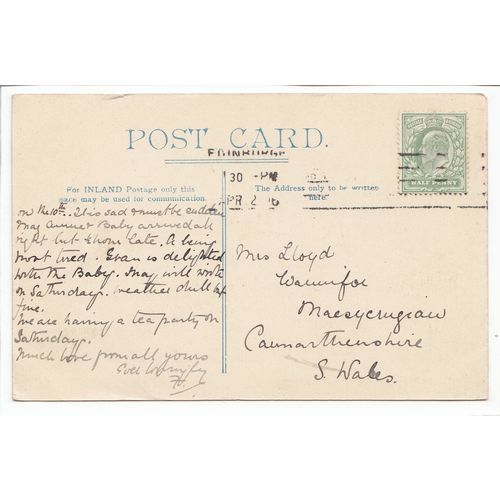 POST CARD.
EDINBURGH
30 - PM
APR 2 06
HALF PENNY
For INLAND Postage only this
space may be used for communication.
The Address only to be written
here
on the 10th. It is sad & must be sudden
May Baby arrived all
right but 2 hours late. A being
most tired. Evan is delighted
with the Baby. May will write
on Saturday. weather still
fine.
We are having a tea party on
Saturday.
Much love from all yours
Ever
Mrs Lloyd
Waunifor
Maesycrugiau
Carmarthenshire
S. Wales.